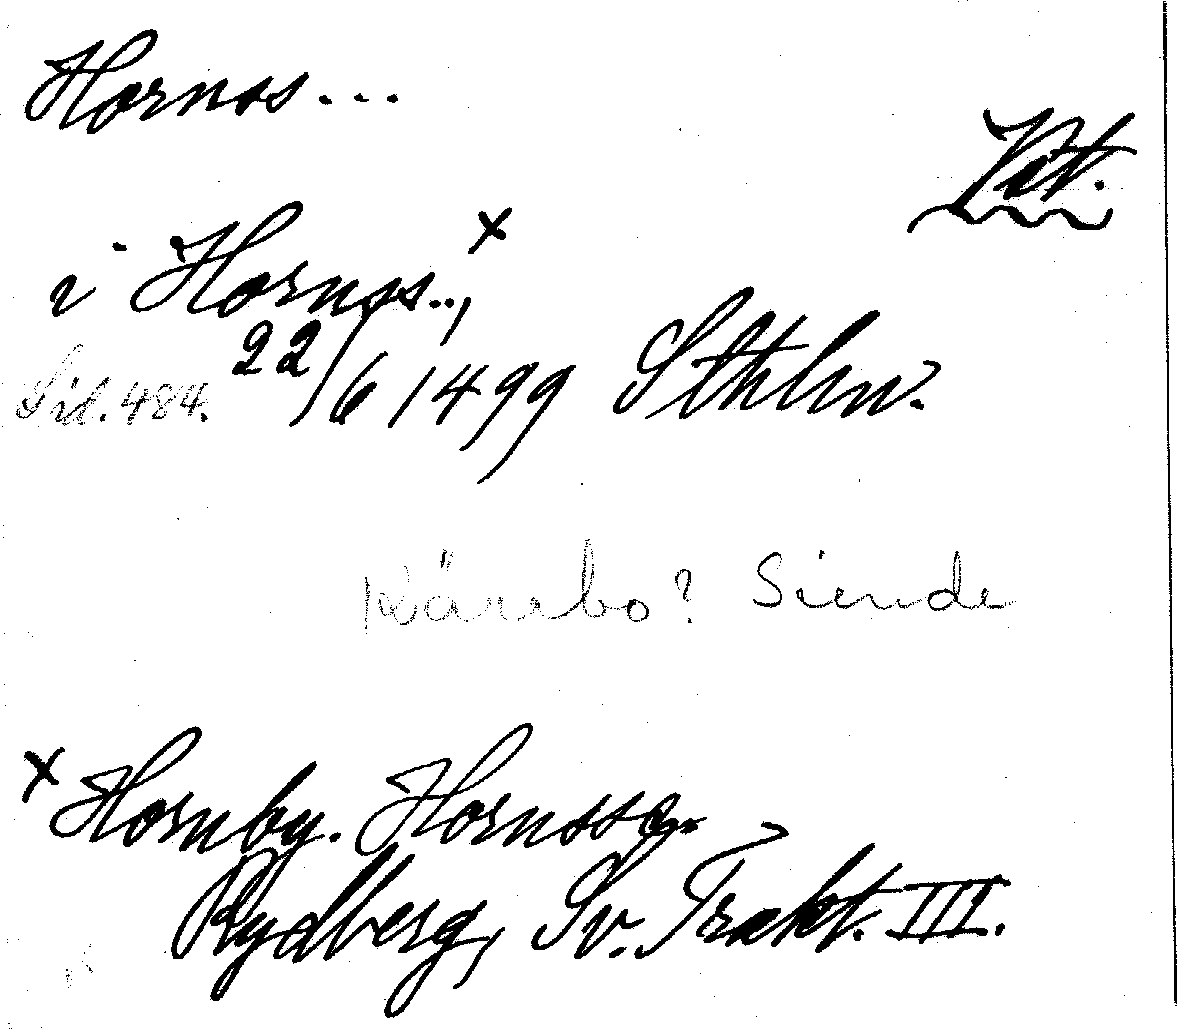 Hornss...
Vat.
i Hornss..,x
Sid. 484. 22/6 1499 Sthlm.
Kärrbo? Siende
x Hornby. Hornsss
Rydberg, Sv. Trakt. III.